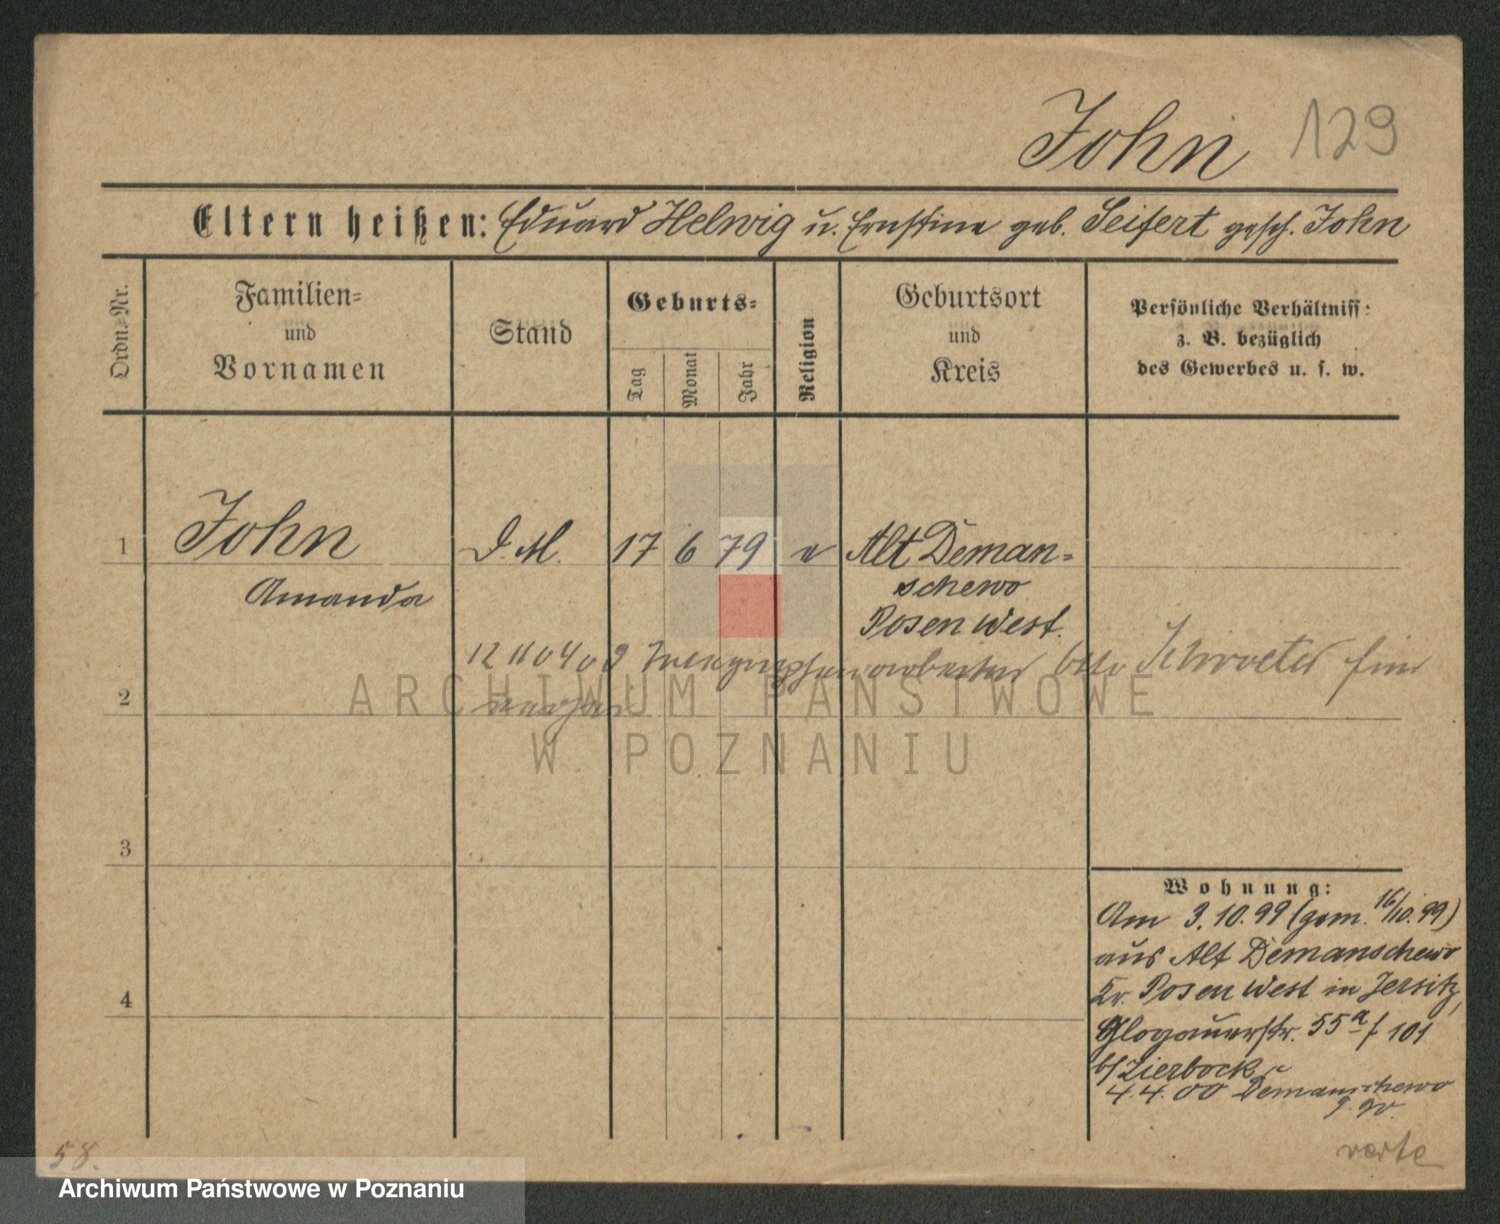 John 129
Eltern heißen: Eduard Helwig u. Ernstine geb. Seifert gesch. John
Ordn.-Nr.
Familien-
und
Vornamen
Stand
Geburts-
Tag
Monat
Jahr
Religion
Geburtsort
und
Kreis
Persönliche Verhältniss:
z. B. bezüglich
des Gewerbes u. s. w.
1 John D. M. 17 6 79 e Alt Deman-
Amanda schewo
Posen West.
12 11 04 arbeiter Otto Schroeter
2
ARCHIWUM PAŃSTWOWE
W POZNANIU
3
4
Wohnung:
Am 3.10.99 (gem. 16/10.99)
aus Alt Demanschewo
Kr. Posen West in Jersitz,
Glogauerstr. 55a f 101
b/ Zierbock
4.4.00 Demanschewo
verte
58.
Archiwum Państwowe w Poznaniu